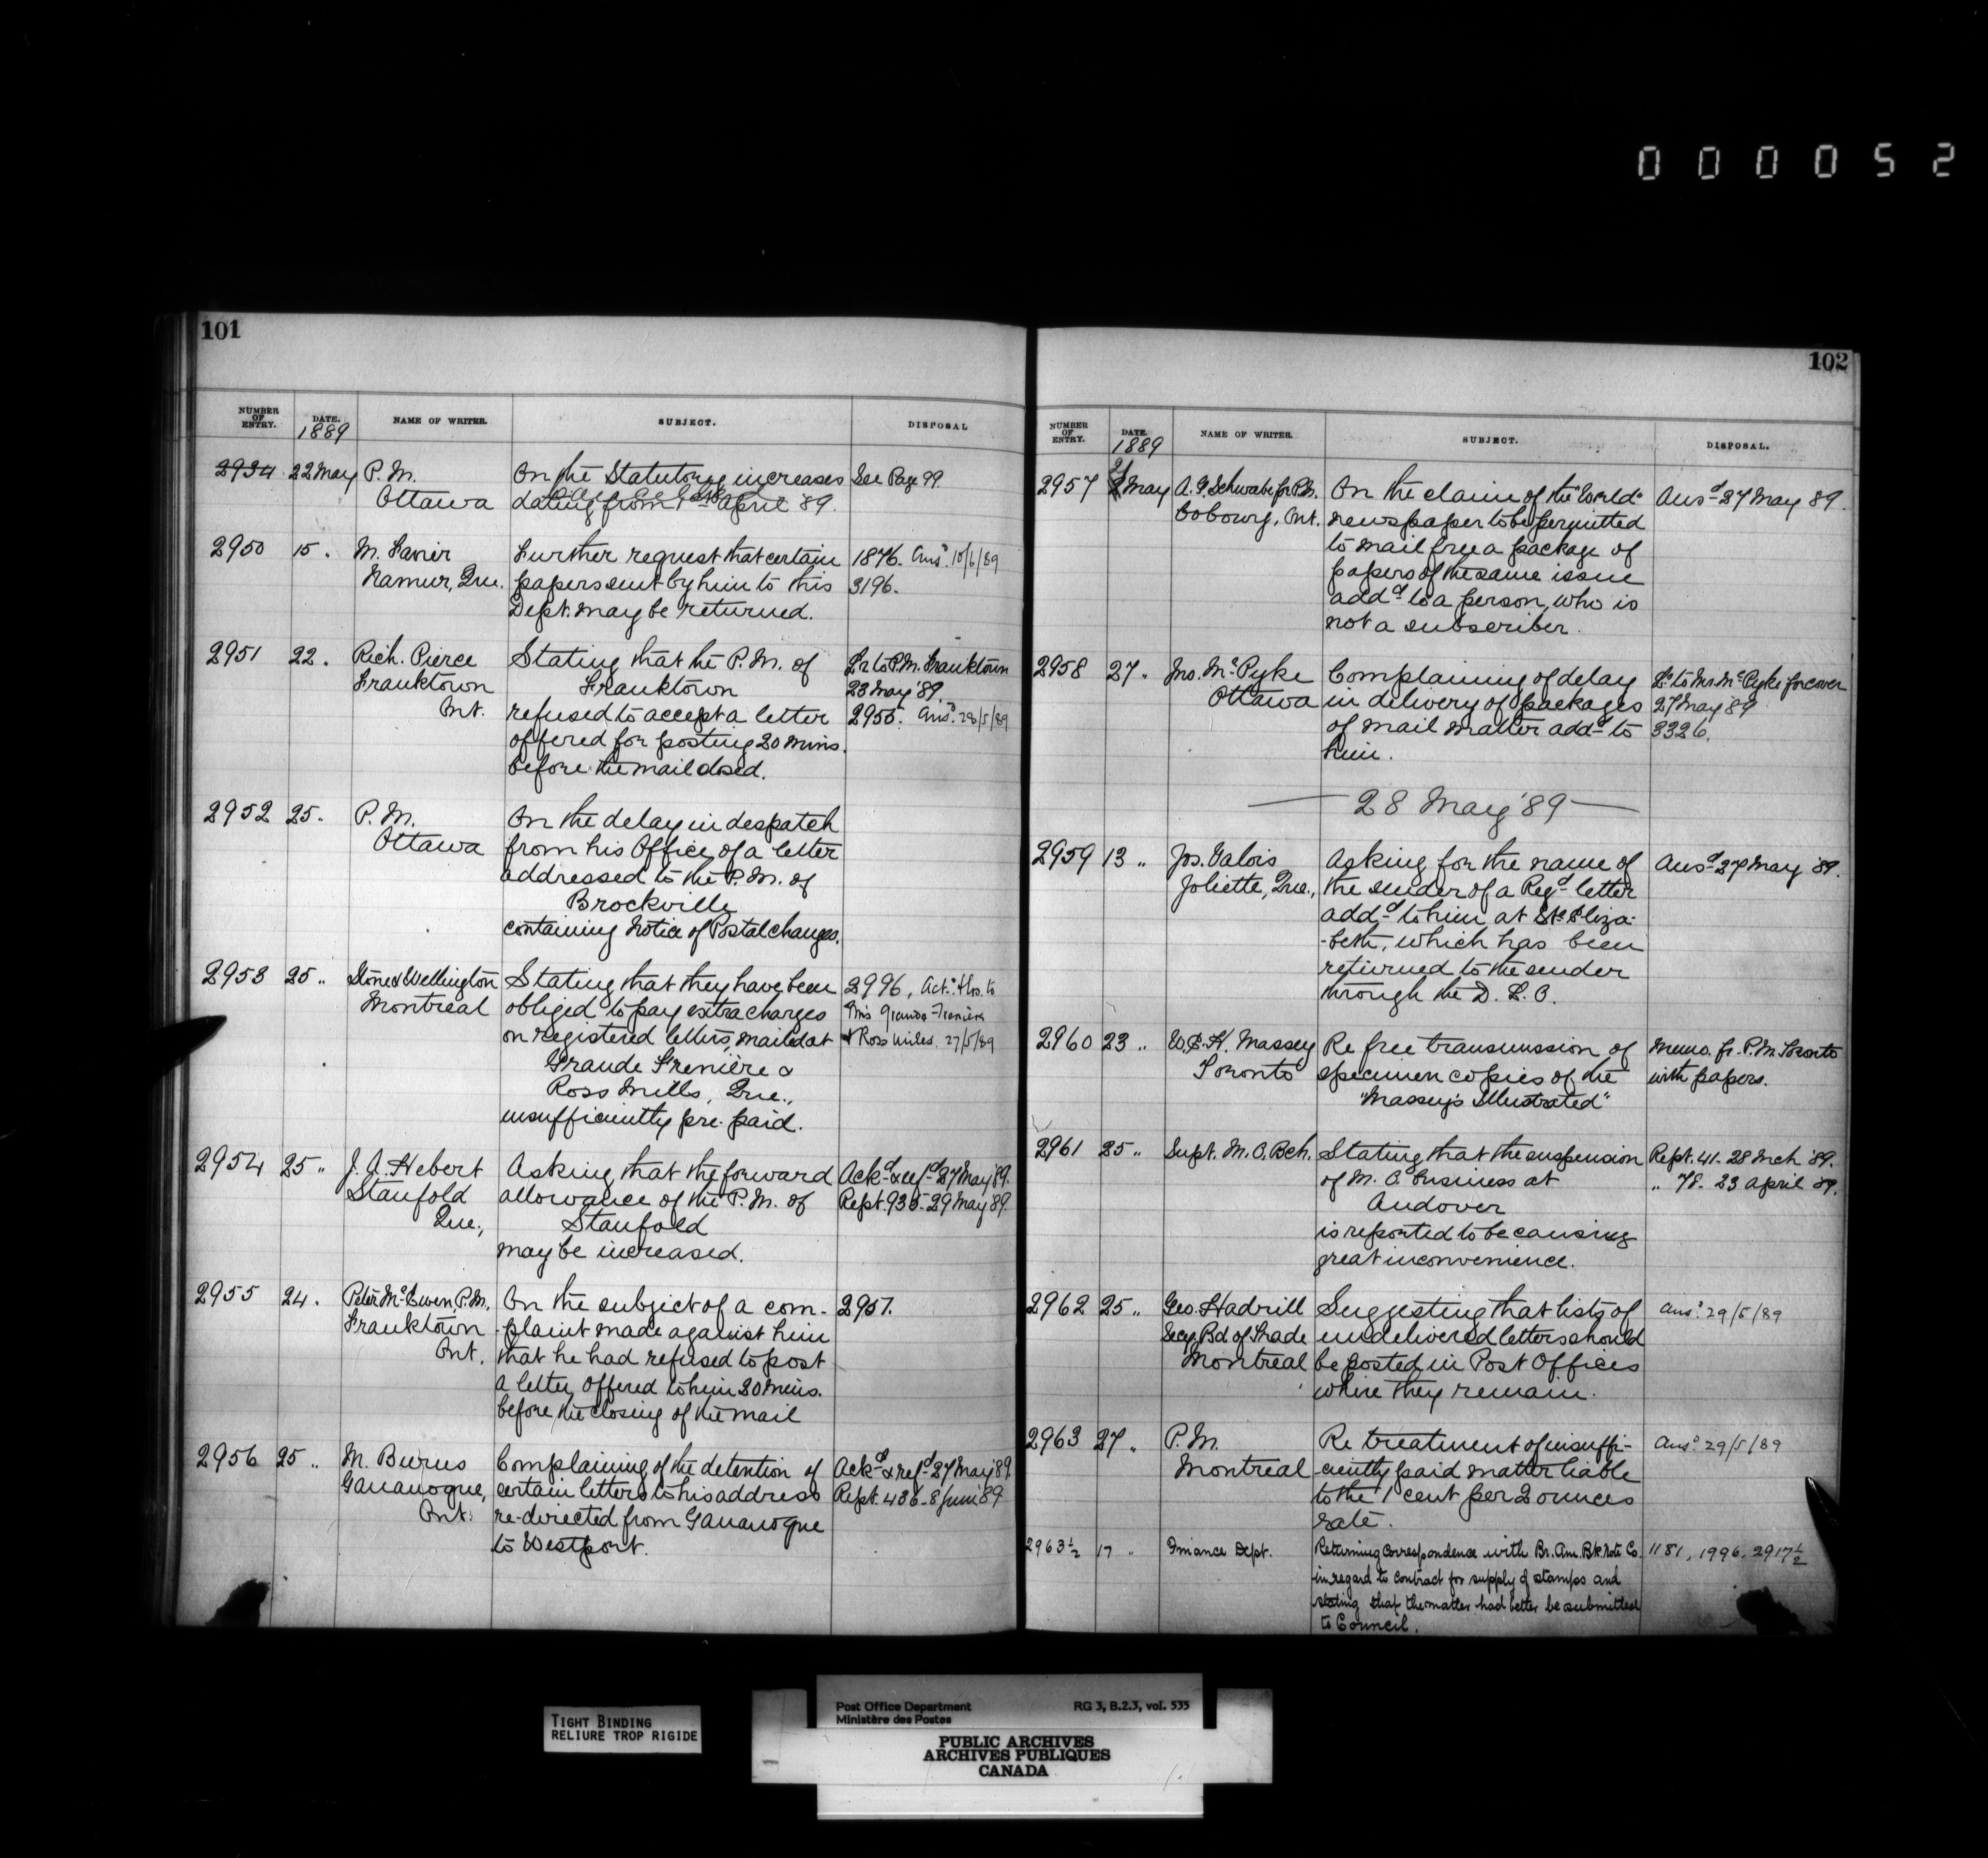 0 0 0 0 5 2
101
NUMBER OF ENTRY. DATE. 1889 NAME OF WRITER. SUBJECT. DISPOSAL
2934 22 May P.M. On the Statutory increases See Page 99.
Ottawa dating from 1st April '89.
2950 15 " M. Namur, Que. Further request that certain 1876. Ansd. 10/6/89
papers sent by him to this 3196.
Dept. may be returned.
2951 22 " Rich. Pierce Stating that the P.M. of Lr to P.M. Franktown
Franktown Franktown 23 May '89.
Ont. refused to accept a letter 2955. Ansd. 28/5/89
offered for posting 20 mins.
before the mail closed.
2952 25 " P.M. On the delay in despatch
Ottawa from his Office of a letter
addressed to the P.M. of
Brockville
containing Notice of Postal changes.
2953 25 " Stone & Wellington Stating that they have been 2996, Actd. & lrs. to
Montreal obliged to pay extra charges P.Ms Grande Frenière
on registered letters, mailed at & Ross Mills. 27/5/89
Grande Frenière &
Ross Mills, Que.,
insufficiently pre-paid.
2954 25 " J. A. Hebert Asking that the forward Ackd & refd 27 May '89.
Stanfold allowance of the P.M. of Rept. 935. 29 May '89.
Que., Stanfold
may be increased.
2955 24 " Peter McEwen, P.M. On the subject of a com- 2951.
Franktown -plaint made against him
Ont. that he had refused to post
a letter offered to him 30 mins.
before the closing of the mail
2956 25 " M. Burns Complaining of the detention of Ackd & refd 27 May '89.
Gananoque, certain letters to his address Rept. 436. 8 June '89
Ont. re-directed from Gananoque
to Westport.
102
NUMBER OF ENTRY. DATE. 1889 NAME OF WRITER. SUBJECT. DISPOSAL.
2957 May A. G. Schwabe for P.M. On the claim of the "World" Ansd 27 May '89.
Cobourg, Ont. newspaper to be permitted
to mail free a package of
papers of the same issue
addd to a person, who is
not a subscriber.
2958 27 " Jno. McPyke Complaining of delay Lr to Mr McPyke for cover
Ottawa in delivery of packages 27 May '89
of mail matter addd to 3326.
him.
— 28 May '89 —
2959 13 " Jos. Valois Asking for the name of Ansd 27 May '89.
Joliette, Que., the sender of a Regd letter
addd to him at Ste Eliza-
-beth, which has been
returned to the sender
through the D. L. O.
2960 23 " W. E. H. Massey Re free transmission of Memo. fr. P.M. Toronto
Toronto specimen copies of the with papers.
"Massey's Illustrated"
2961 25 " Supt. M. O. Bch. Stating that the suspension Rept. 41. 28 Mch '89.
of M. O. business at " 78. 23 April '89.
Andover
is reported to be causing
great inconvenience.
2962 25 " Geo. Hadrill Suggesting that lists of Ansd. 29/5/89
Secy. Bd of Trade undelivered letters should
Montreal be posted in Post Offices
where they remain.
2963 27 " P.M. Re treatment of insuffi- Ansd. 29/5/89
Montreal -ciently paid matter liable
to the 1 cent per 2 ounces
rate.
2963½ 17 " Finance Dept. Returning Correspondence with Br. Am. Bk Note Co. 1181, 1996, 2917½
in regard to contract for supply of stamps and
stating that the matter had better be submitted
to Council.
TIGHT BINDING
RELIURE TROP RIGIDE
Post Office Department RG 3, B.2.3, vol. 535
Ministère des Postes
PUBLIC ARCHIVES
ARCHIVES PUBLIQUES
CANADA